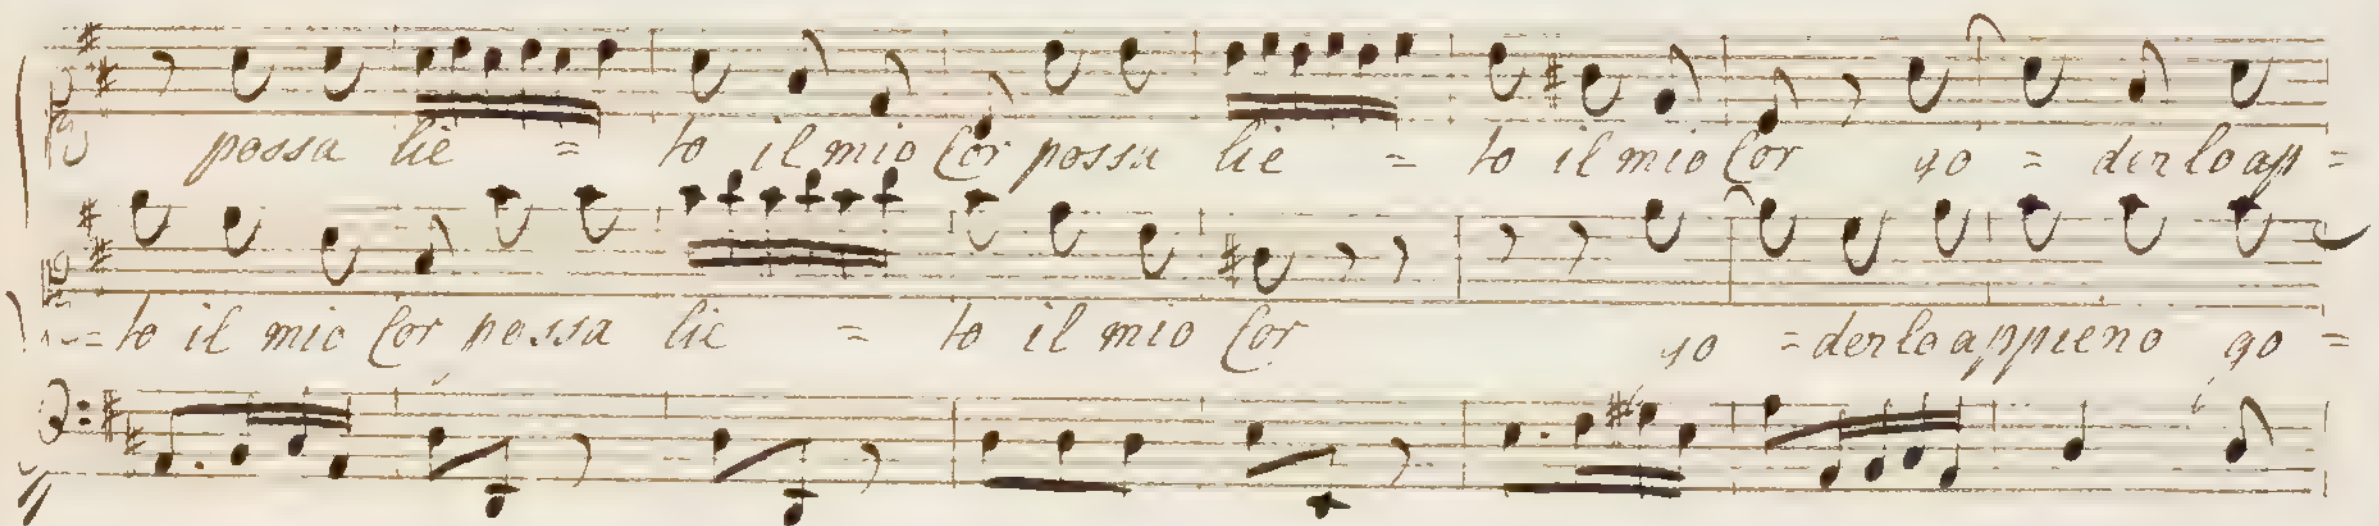 possa lie = to il mio Cor possa lie = to il mio Cor go = derlo ap =
= to il mio Cor possa lie = to il mio Cor go = derlo appieno go =